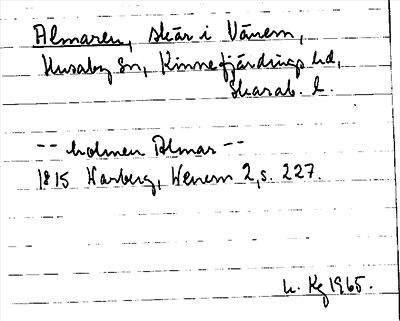 Almaren, skär i Vänern,
Husaby sn, Kinnefjärdings hd,
Skarab. l.
-- holmen Almar --
1815 Warberg, Wenern 2, s. 227.
h. Kg 1965.